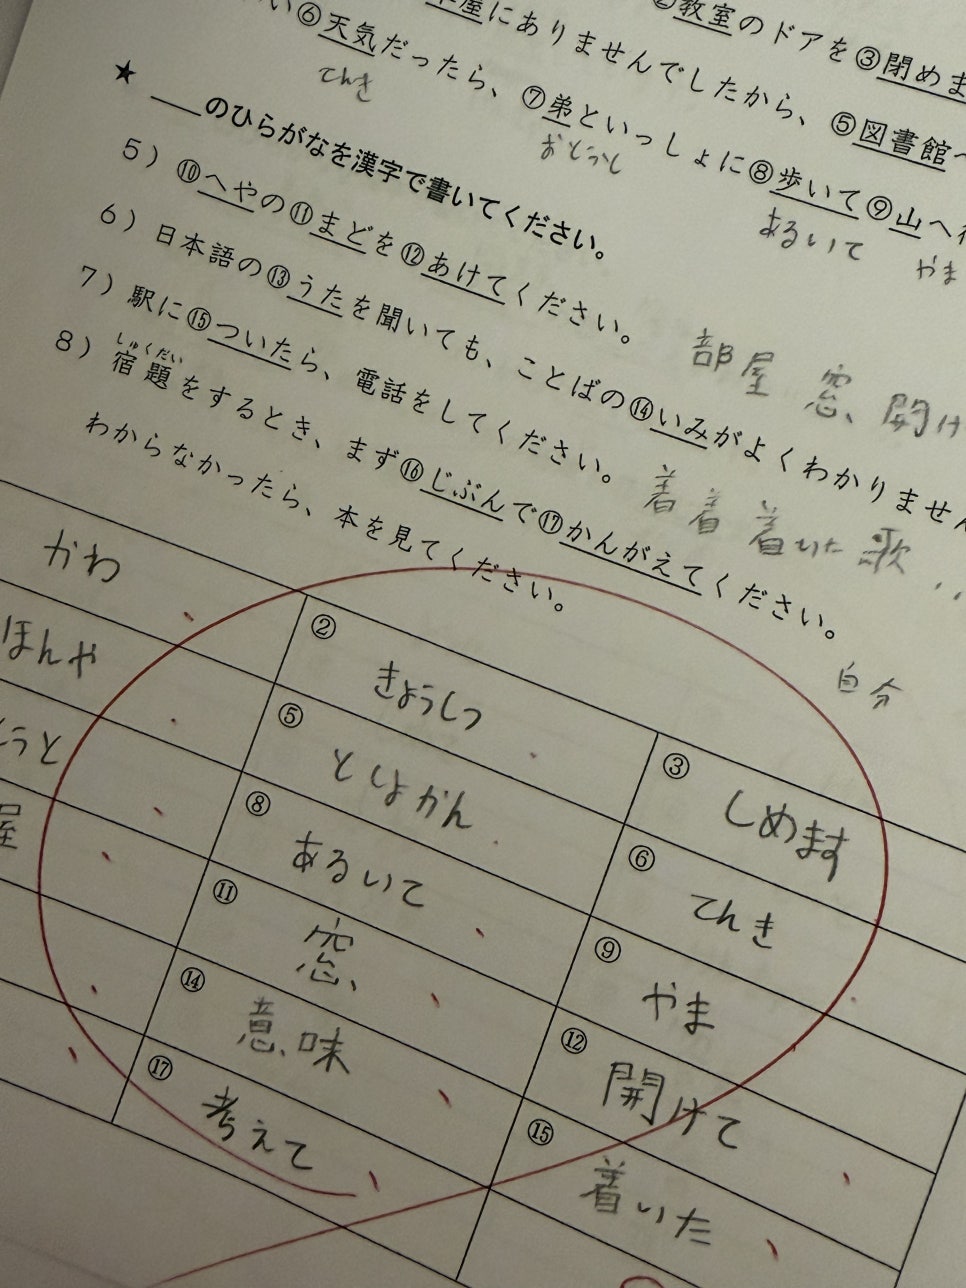 ②教室のドアを③閉めま
屋にありませんでしたから、⑤図書館へ
い⑥天気だったら、⑦弟といっしょに⑧歩いて⑨山へ
てんき
おとうと
あるいて
やま
★ ___のひらがなを漢字で書いてください。
5）⑩へやの⑪まどを⑫あけてください。
部屋 窓 開け
6）日本語の⑬うたを聞いても、ことばの⑭いみがよくわかりません
7）駅に⑮ついたら、電話をしてください。
着 着 着いた 歌
しゅくだい
8）宿題をするとき、まず⑯じぶんで⑰かんがえてください。
わからなかったら、本を見てください。
自分
かわ
② きょうしつ
③ しめます
ほんや
⑤ としょかん
⑥ てんき
うと
⑧ あるいて
⑨ やま
屋
⑪ 窓
⑫ 開けて
⑭ 意味
⑮ 着いた
⑰ 考えて